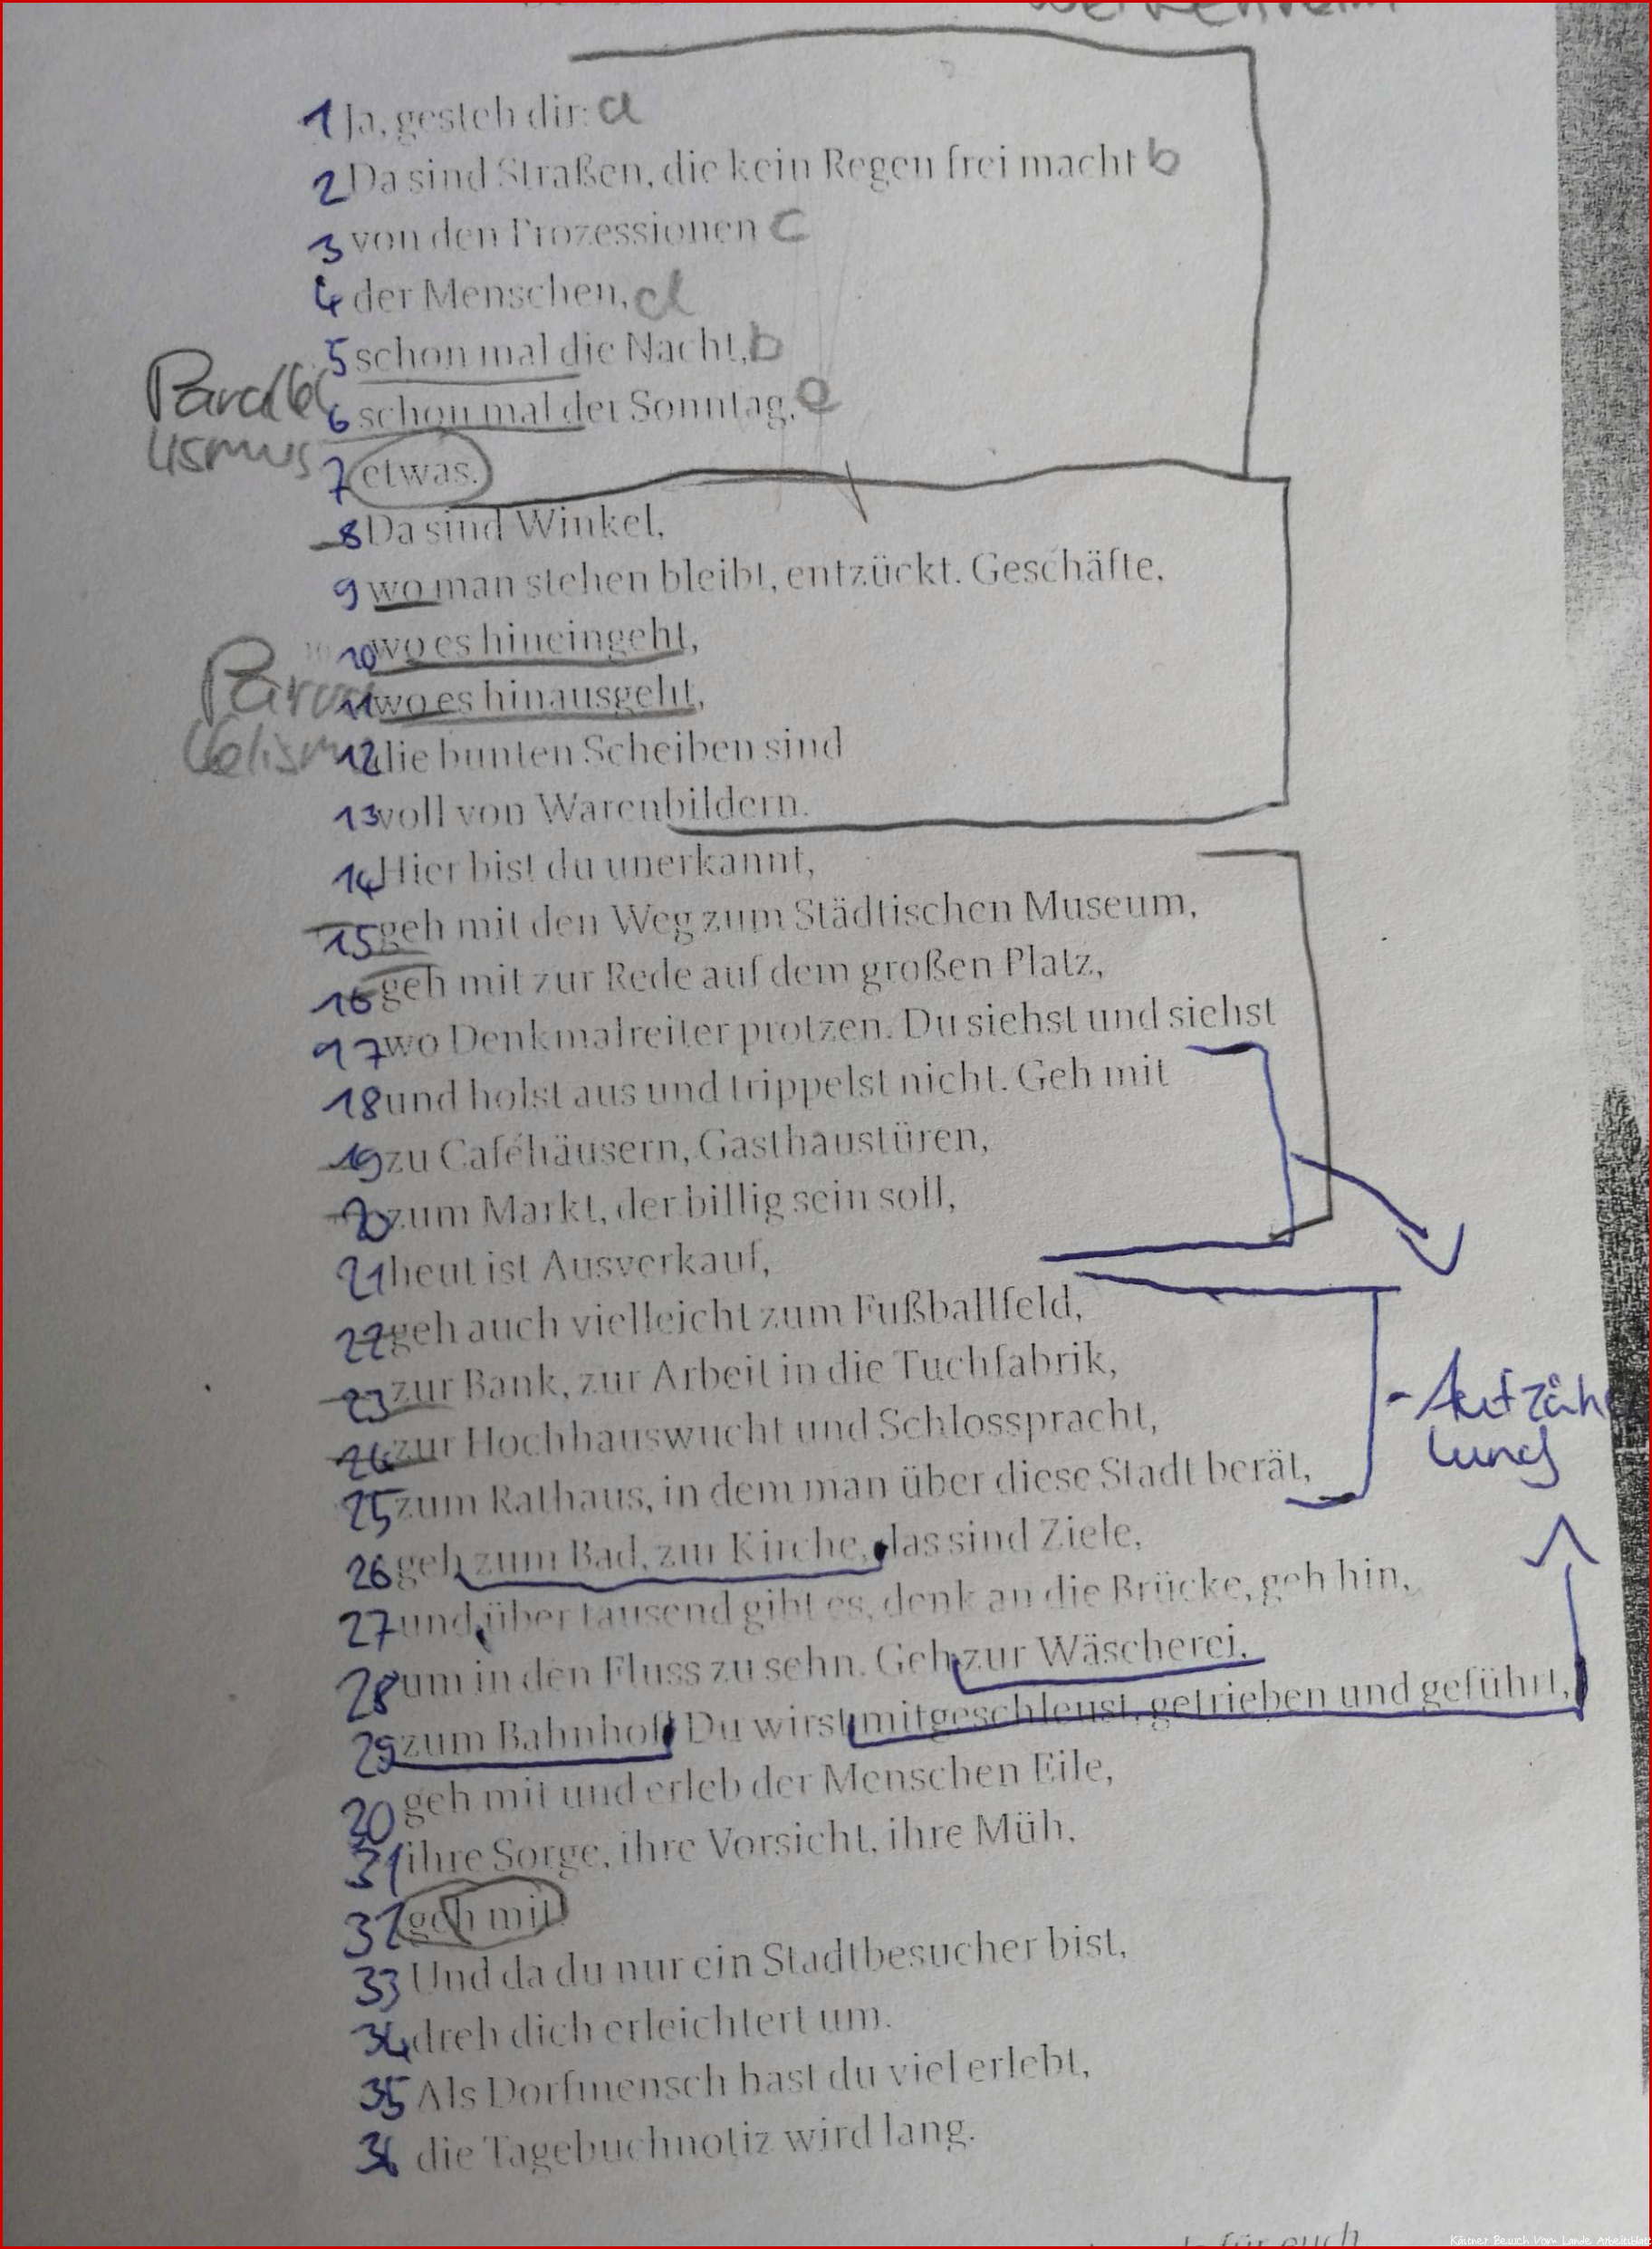 1 Ja, gesteh dir: a
2 Da sind Straßen, die kein Regen frei macht b
3 von den Prozessionen c
4 der Menschen, d
5 schon mal die Nacht, b
Paralle
6 schon mal der Sonntag, e
lismus
7 etwas.
8 Da sind Winkel,
9 wo man stehen bleibt, entzückt. Geschäfte,
10 wo es hineingeht,
11 wo es hinausgeht,
12 die bunten Scheiben sind
13 voll von Warenbildern.
14 Hier bist du unerkannt,
15 geh mit den Weg zum Städtischen Museum,
16 geh mit zur Rede auf dem großen Platz,
17 wo Denkmalreiter protzen. Du siehst und siehst
18 und holst aus und trippelst nicht. Geh mit
19 zu Caféhäusern, Gasthaustüren,
20 zum Markt, der billig sein soll,
21 heut ist Ausverkauf,
22 geh auch vielleicht zum Fußballfeld,
23 zur Bank, zur Arbeit in die Tuchfabrik,
- Aufzäh
24 zur Hochhauswucht und Schlosspracht,
lung
25 zum Rathaus, in dem man über diese Stadt berät,
26 geh zum Bad, zur Kirche, das sind Ziele,
27 und über tausend gibt es, denk an die Brücke, geh hin,
28 um in den Fluss zu sehn. Geh zur Wäscherei,
29 zum Bahnhof. Du wirst mitgeschleust, getrieben und geführt,
30 geh mit und erleb der Menschen Eile,
31 ihre Sorge, ihre Vorsicht, ihre Müh,
32 geh mit.
33 Und da du nur ein Stadtbesucher bist,
34 dreh dich erleichtert um.
35 Als Dorfmensch hast du viel erlebt,
36 die Tagebuchnotiz wird lang.
für euch
Kästner Besuch Vom Lande Arbeitsblatt